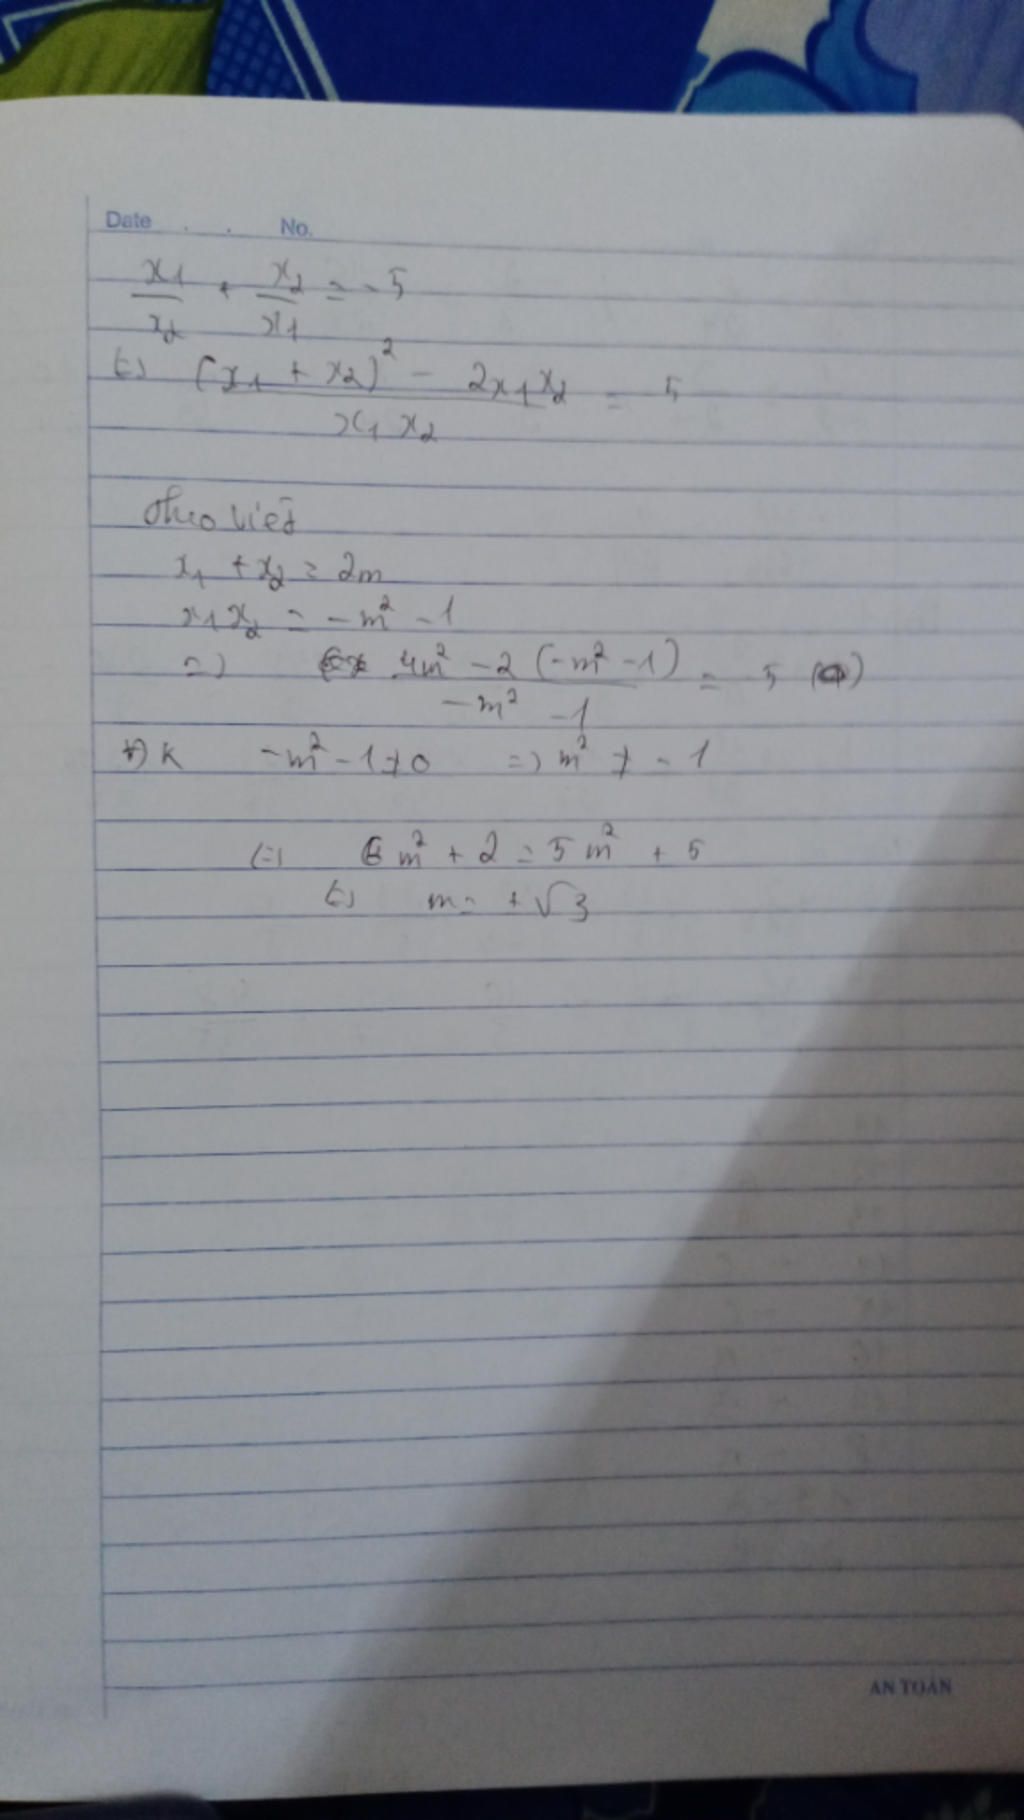 Date . . No.
x1/x2 + x2/x1 = -5
(=) ((x1 + x2)² - 2x1x2)/(x1 x2) = -5
theo viét
x1 + x2 = 2m
x1x2 = -m² - 1
=) (4m² - 2(-m² - 1))/(-m² - 1) = -5
đk -m² - 1 ≠ 0 =) m² ≠ - 1
(=) 6m² + 2 = 5m² + 5
(=) m = ±√3
AN TOÀN